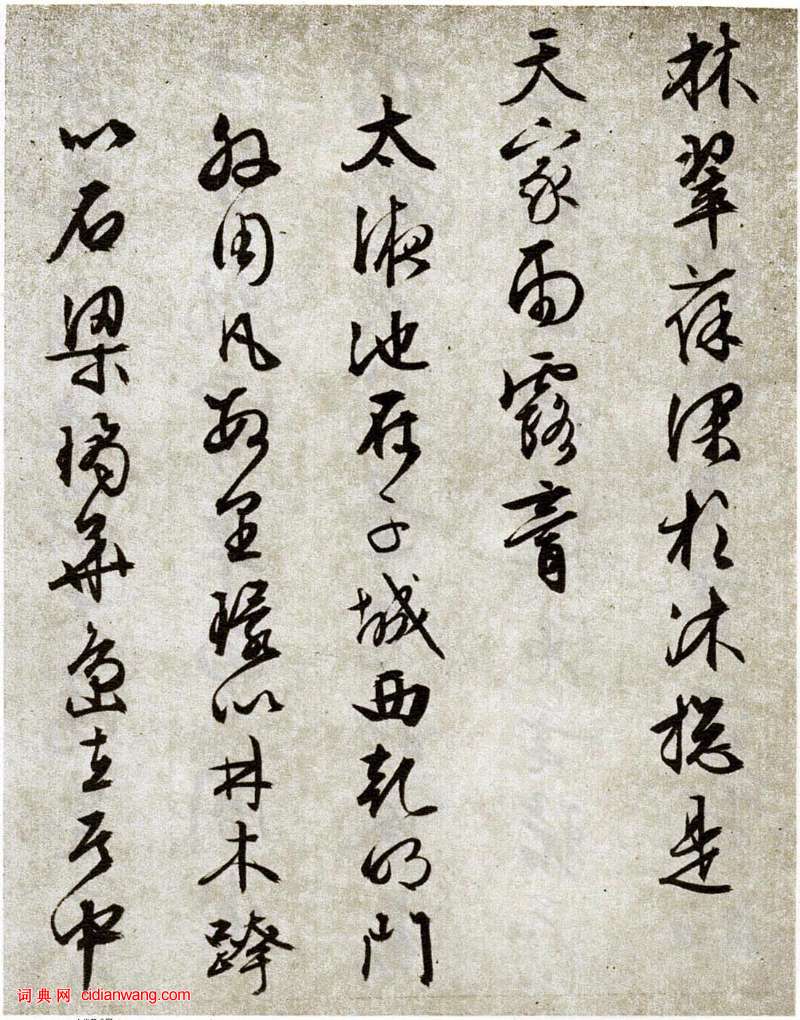 林翠葆深於沐總是
天家雨露膏
太液池在子城西乾明門
外周凡數里環以林木跨
以石梁瓊華島在其中
词典网 cidianwang.com